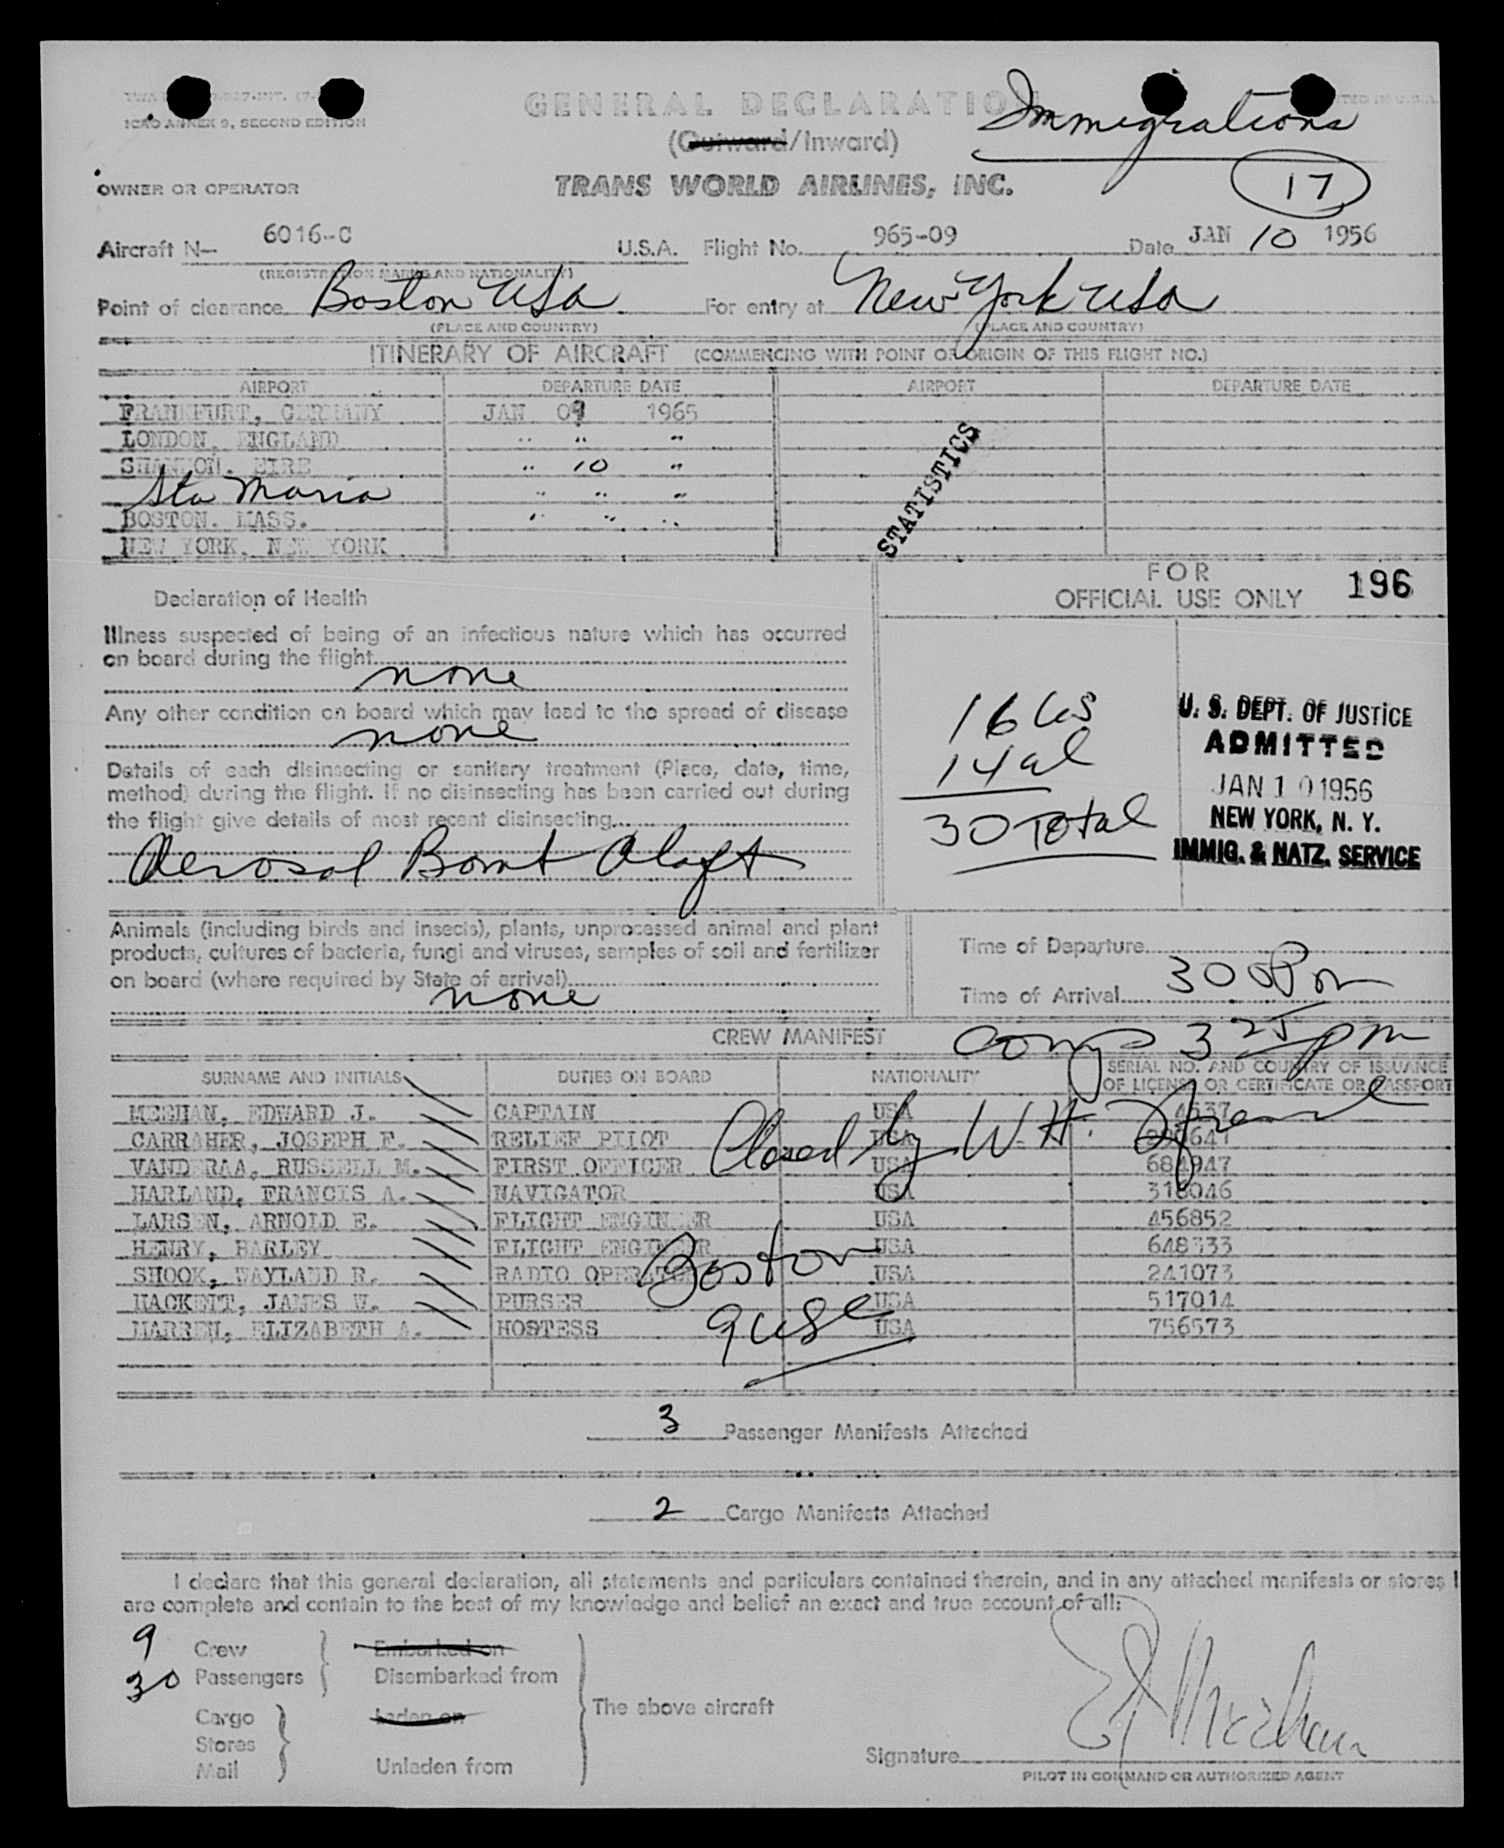 ICAO ANNEX 9, SECOND EDITION
GENERAL DECLARATION
Immigrations
(Outward/Inward)
OWNER OR OPERATOR
TRANS WORLD AIRLINES, INC.
17
Aircraft N- 6016-C U.S.A. Flight No. 965-09 Date JAN 10 1956
(REGISTRATION MARKS AND NATIONALITY)
Point of clearance Boston USA For entry at New York USA
(PLACE AND COUNTRY) (PLACE AND COUNTRY)
ITINERARY OF AIRCRAFT (COMMENCING WITH POINT OF ORIGIN OF THIS FLIGHT NO.)
AIRPORT DEPARTURE DATE AIRPORT DEPARTURE DATE
FRANKFURT, GERMANY JAN 09 1965
LONDON, ENGLAND " " "
SHANNON. EIRE " 10 "
Sta Maria " " "
BOSTON. MASS. " " "
NEW YORK, NEW YORK
STATISTICS
FOR
OFFICIAL USE ONLY 196
Declaration of Health
Illness suspected of being of an infectious nature which has occurred
on board during the flight
none
Any other condition on board which may lead to the spread of disease
none
Details of each disinsecting or sanitary treatment (Place, date, time,
method) during the flight. If no disinsecting has been carried out during
the flight give details of most recent disinsecting
Aerosol Bomb Aloft
16 Cs
14 al
30 Total
U. S. DEPT. OF JUSTICE
ADMITTED
JAN 10 1956
NEW YORK, N. Y.
IMMIG. & NATZ. SERVICE
Animals (including birds and insects), plants, unprocessed animal and plant
products, cultures of bacteria, fungi and viruses, samples of soil and fertilizer
on board (where required by State of arrival)
none
Time of Departure
Time of Arrival 300 Pm
CREW MANIFEST
Comp 325 pm
SURNAME AND INITIALS DUTIES ON BOARD NATIONALITY SERIAL NO. AND COUNTRY OF ISSUANCE
OF LICENSE OR CERTIFICATE OR PASSPORT
MEEHAN, EDWARD J. CAPTAIN USA
CARRAHER, JOSEPH F. RELIEF PILOT USA
VANDERAA, RUSSELL M. FIRST OFFICER USA 684947
HARLAND, FRANCIS A. NAVIGATOR USA 318046
LARSEN, ARNOLD E. FLIGHT ENGINEER USA 456852
HENRY, HARLEY FLIGHT ENGINEER USA 648333
SHOOK, WAYLAND R. RADIO OPERATOR USA 241073
HACKETT, JAMES W. PURSER USA 517014
MARREN, ELIZABETH A. HOSTESS USA 756573
Closed by W. H.
Boston
9 USC
3 Passenger Manifests Attached
2 Cargo Manifests Attached
I declare that this general declaration, all statements and particulars contained therein, and in any attached manifests or stores l
are complete and contain to the best of my knowledge and belief an exact and true account of all:
9 Crew Embarked on
30 Passengers Disembarked from
The above aircraft
Cargo Laden on
Stores
Mail Unladen from
Signature E J Meehan
PILOT IN COMMAND OR AUTHORIZED AGENT